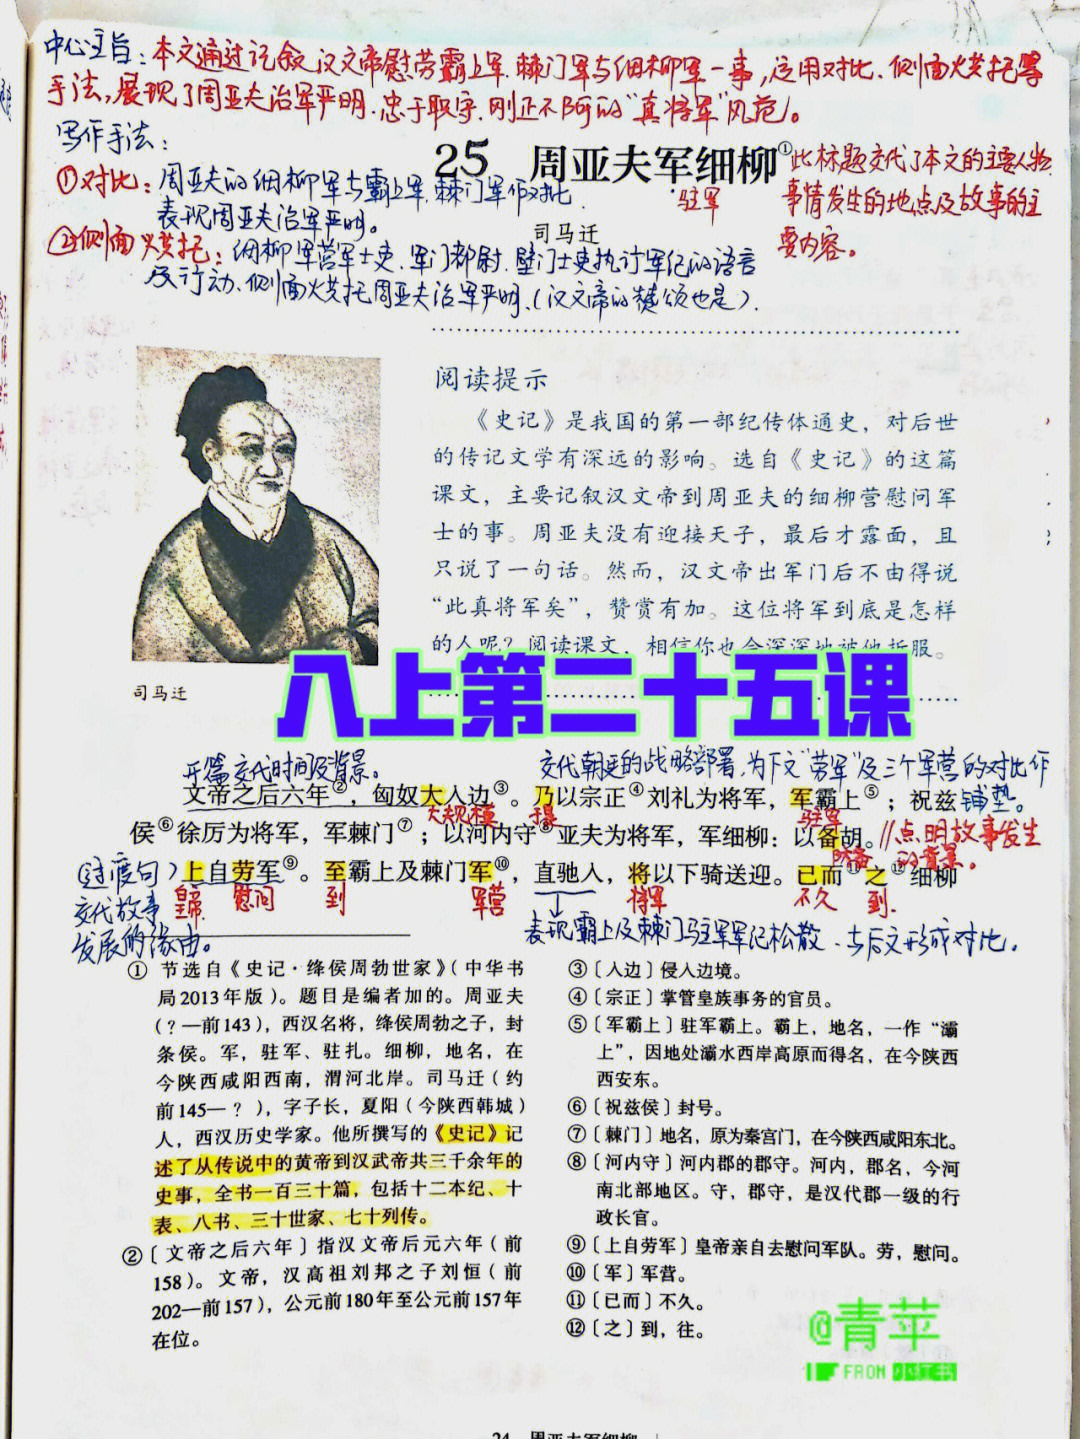 中心主旨：本文通过记叙汉文帝慰劳霸上军、棘门军与细柳军一事，运用对比、侧面烘托等
手法，展现了周亚夫治军严明、忠于职守、刚正不阿的“真将军”风范。
写作手法：
①对比：周亚夫的细柳军与霸上军、棘门军作对比，
表现周亚夫治军严明。
②侧面烘托：细柳军营军士吏、军门都尉、壁门士吏执行军纪的语言
及行动、侧面烘托周亚夫治军严明、（汉文帝的赞颂也是）.
25 周亚夫军细柳①
驻军
司马迁
此标题交代了本文的主要人物
事情发生的地点及故事的主
要内容。
阅读提示
《史记》是我国的第一部纪传体通史，对后世
的传记文学有深远的影响。选自《史记》的这篇
课文，主要记叙汉文帝到周亚夫的细柳营慰问军
士的事。周亚夫没有迎接天子，最后才露面，且
只说了一句话。然而，汉文帝出军门后不由得说
“此真将军矣”，赞赏有加。这位将军到底是怎样
的人呢？阅读课文，相信你也会深深地被他折服。
司马迁
八上第二十五课
开篇交代时间及背景。
交代朝廷的战略部署，为下文“劳军”及三个军营的对比作
铺垫。
文帝之后六年②，匈奴大入边③。乃以宗正④刘礼为将军，军霸上⑤；祝兹
大规模
于是
驻军
侯⑥徐厉为将军，军棘门⑦；以河内守⑧亚夫为将军，军细柳：以备胡。
防备
//点明故事发生
的背景。
（过度句）
上自劳军⑨。至霸上及棘门军⑩，直驰入，将以下骑送迎。已而⑪之⑫细柳
皇帝
慰问
到
军营
将军
不久
到.
交代故事
发展的缘由。
表现霸上及棘门驻军军纪松散、与后文形成对比.
①节选自《史记·绛侯周勃世家》（中华书
局2013年版）。题目是编者加的。周亚夫
（？—前143），西汉名将，绛侯周勃之子，封
条侯。军，驻军、驻扎。细柳，地名，在
今陕西咸阳西南，渭河北岸。司马迁（约
前145—？），字子长，夏阳（今陕西韩城）
人，西汉历史学家。他所撰写的《史记》记
述了从传说中的黄帝到汉武帝共三千余年的
史事，全书一百三十篇，包括十二本纪、十
表、八书、三十世家、七十列传。
②〔文帝之后六年〕指汉文帝后元六年（前
158）。文帝，汉高祖刘邦之子刘恒（前
202—前157），公元前180年至公元前157年
在位。
③〔入边〕侵入边境。
④〔宗正〕掌管皇族事务的官员。
⑤〔军霸上〕驻军霸上。霸上，地名，一作“灞
上”，因地处灞水西岸高原而得名，在今陕西
西安东。
⑥〔祝兹侯〕封号。
⑦〔棘门〕地名，原为秦宫门，在今陕西咸阳东北。
⑧〔河内守〕河内郡的郡守。河内，郡名，今河
南北部地区。守，郡守，是汉代郡一级的行
政长官。
⑨〔上自劳军〕皇帝亲自去慰问军队。劳，慰问。
⑩〔军〕军营。
⑪〔已而〕不久。
⑫〔之〕到，往。
@青苹
FROM 小红书
24 周亚夫军细柳